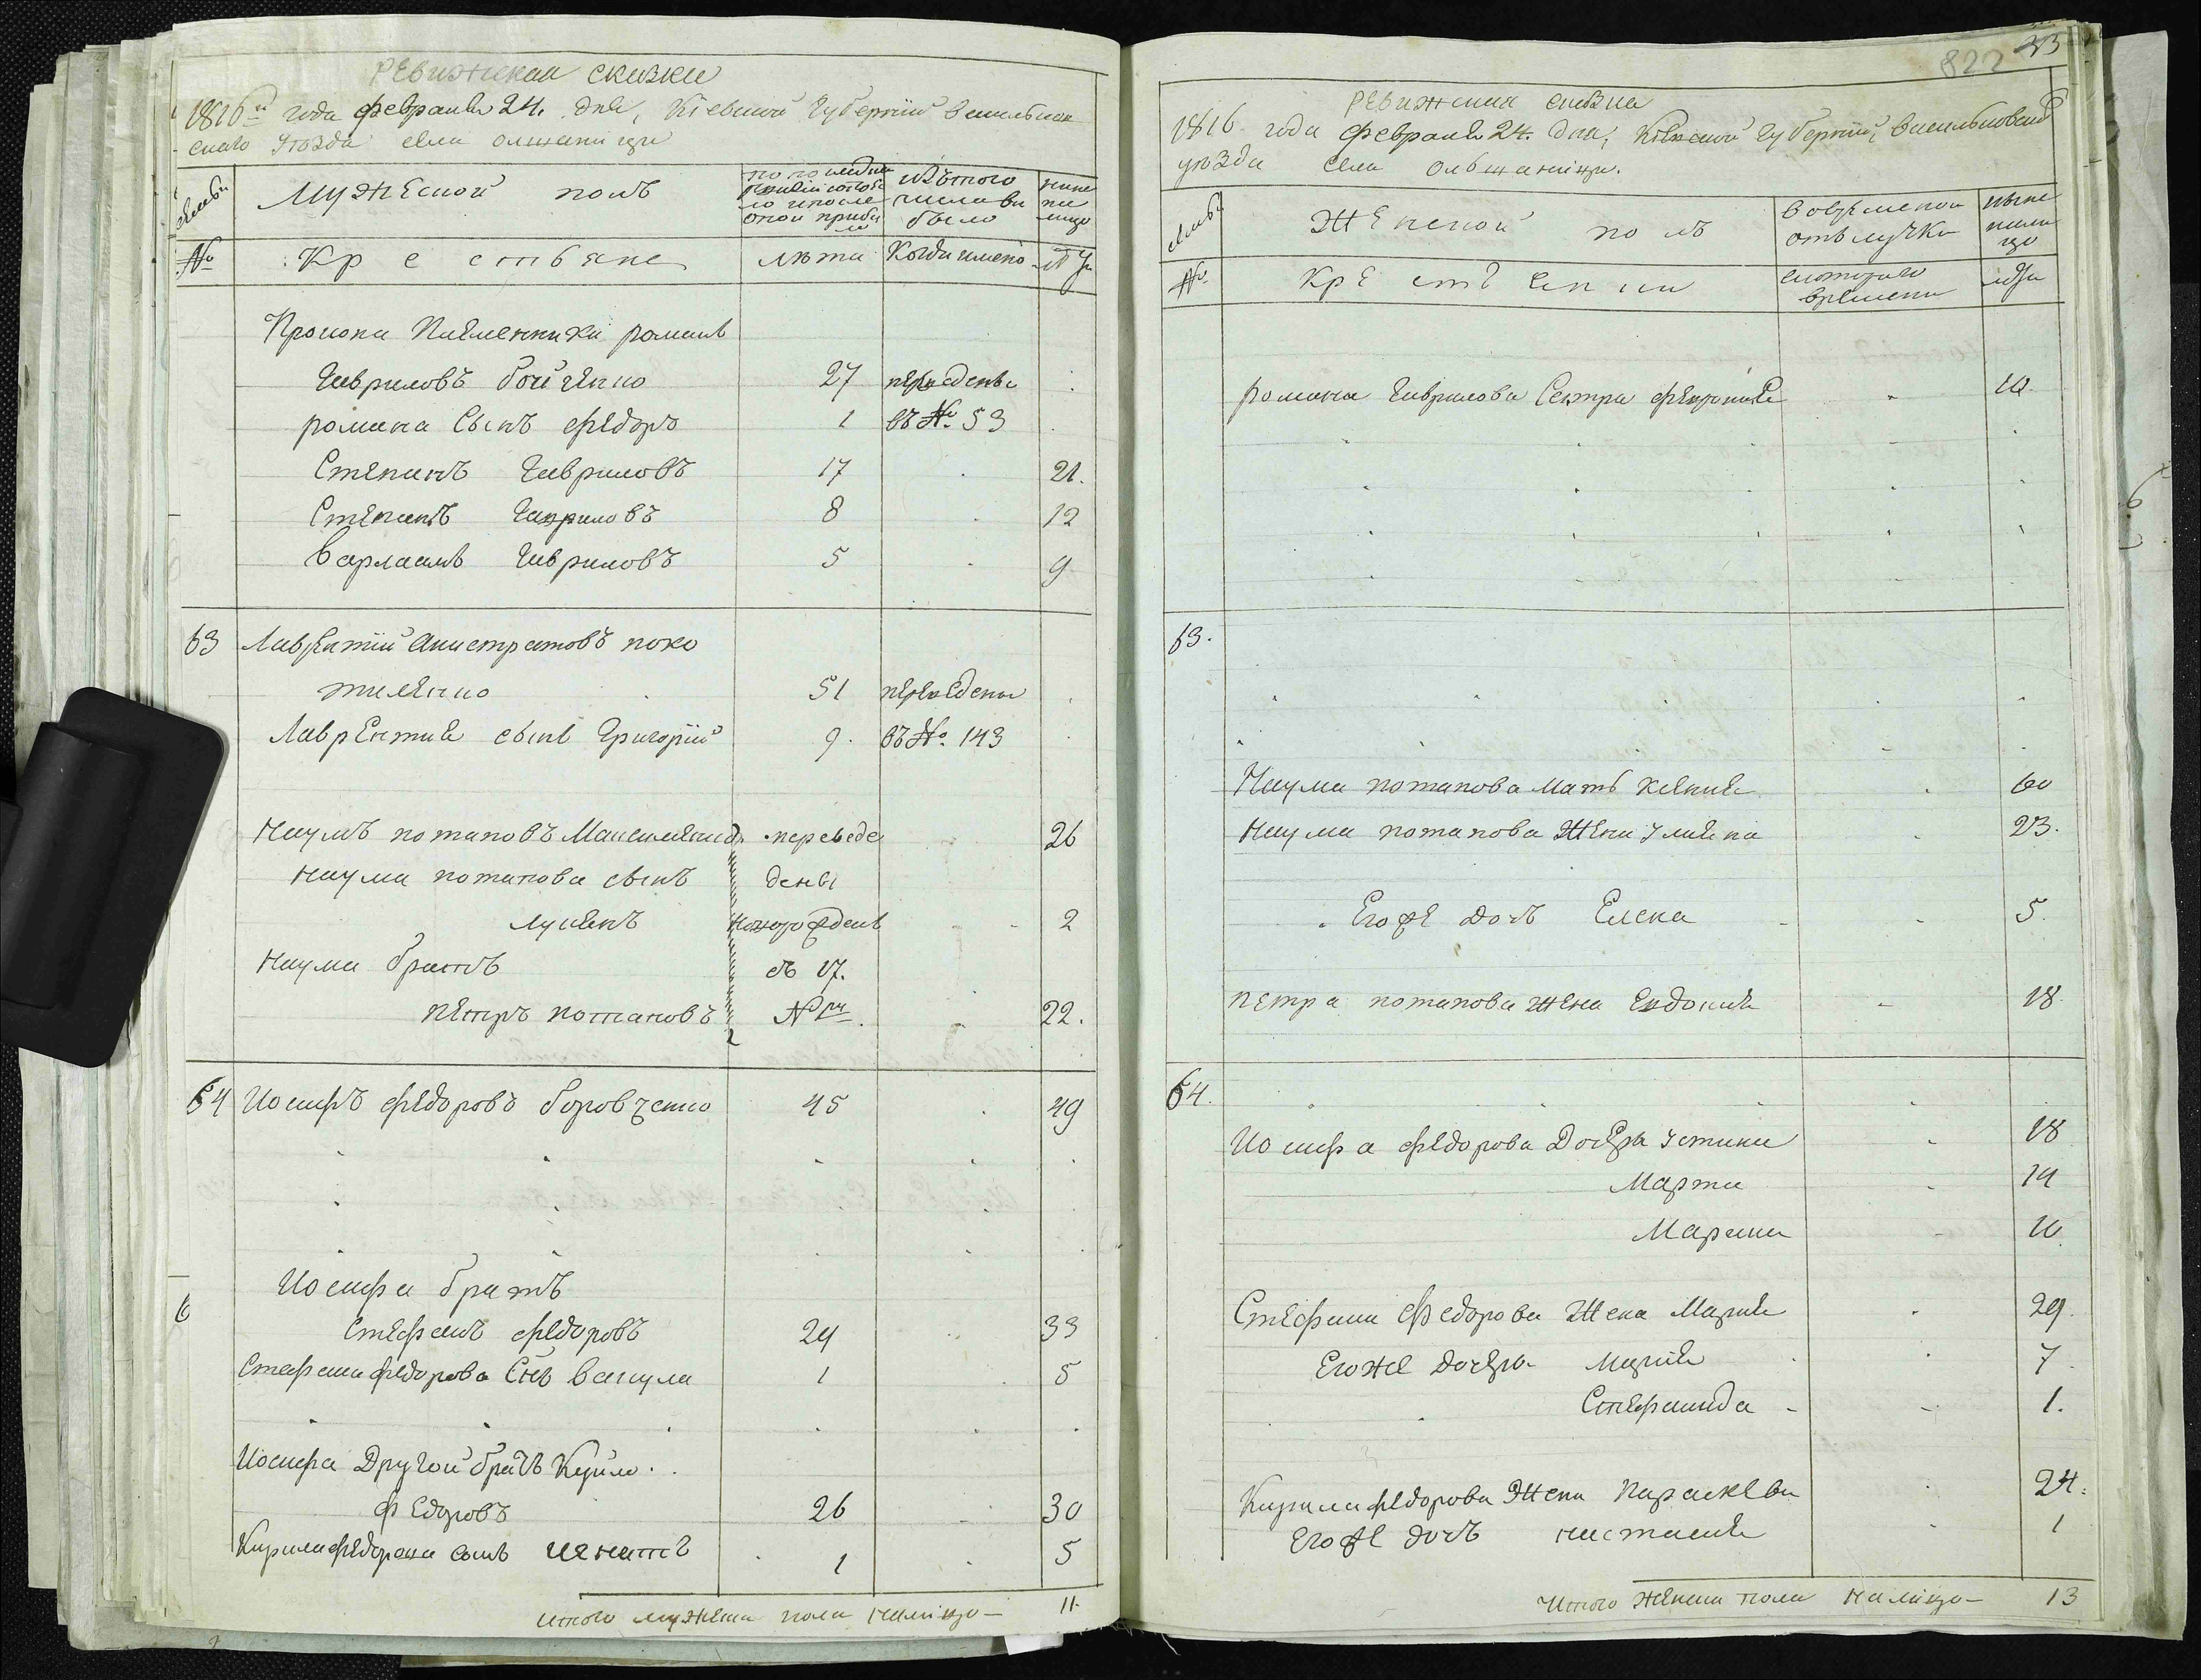 Ревижская сказка
1816й года февраля 24. дня, Кіевской Губерніи Васильков
скаго уѣзда села ольшаници
семьи Мужеской полъ по последней ревизіи состоя
ло и после оной прибы
ло изътого числа вы
было ныне на
лицо
№ Крестьяне лѣта когда имено лѣ
Прокопа Племенники романъ
Гавриловъ бойченко 27 переведены
романа Сынъ федоръ 1 въ № 53
Степанъ Гавриловъ 17 21.
Степанъ Гавриловъ 8 12
Варлаамъ Гавриловъ 5 9
63 Лаврентій Анистратовъ поко
тиленко 51 переведены
Лаврентия сынъ Григорій 9. въ №. 143
Наумъ потаповъ переве 26
Наума потапова сынъ дены
Лукянъ 2
Наума братъ съ 17.
петръ потаповъ №ра. 22.
64 Иосифъ федоровъ боровченко 45 49
Иосифа братъ
6
Стефанъ федоровъ 29 33
Стефана федорова Снъ вакула 1 5
Иосифа Другой братъ Кирило
федоровъ 26 30
Кирила федорова сынъ игнатъ 1 5
итого мужеска пола налицо — 11
822 23
ревижская сказка
1816 года февраля 24. дня, Кіевской Губерніи, Васильковскаго
уѣзда села Ольшаници.
семьи Женской полъ во временой
отълучки ныне
нали
цо
№ Крестьянки скотораго
времени лѣта
романа Гаврилова Сестра 10.
63.
Наума потапова мать Ксения 60
Наума потапова Жена Улияна 23.
Егоже дочь Елена 5.
петра потапова жена Евдокия 18
64.
Иосифа федорова Дочери Устина 18
Марта 14
Марина 10
Стефана федорова Жена Мария 29.
Егоже дочери Мария 7.
Стефанида 1.
Кирила федорова Жена Параскева 24.
Егоже дочь настасия 1
Итого женска пола налицо — 13